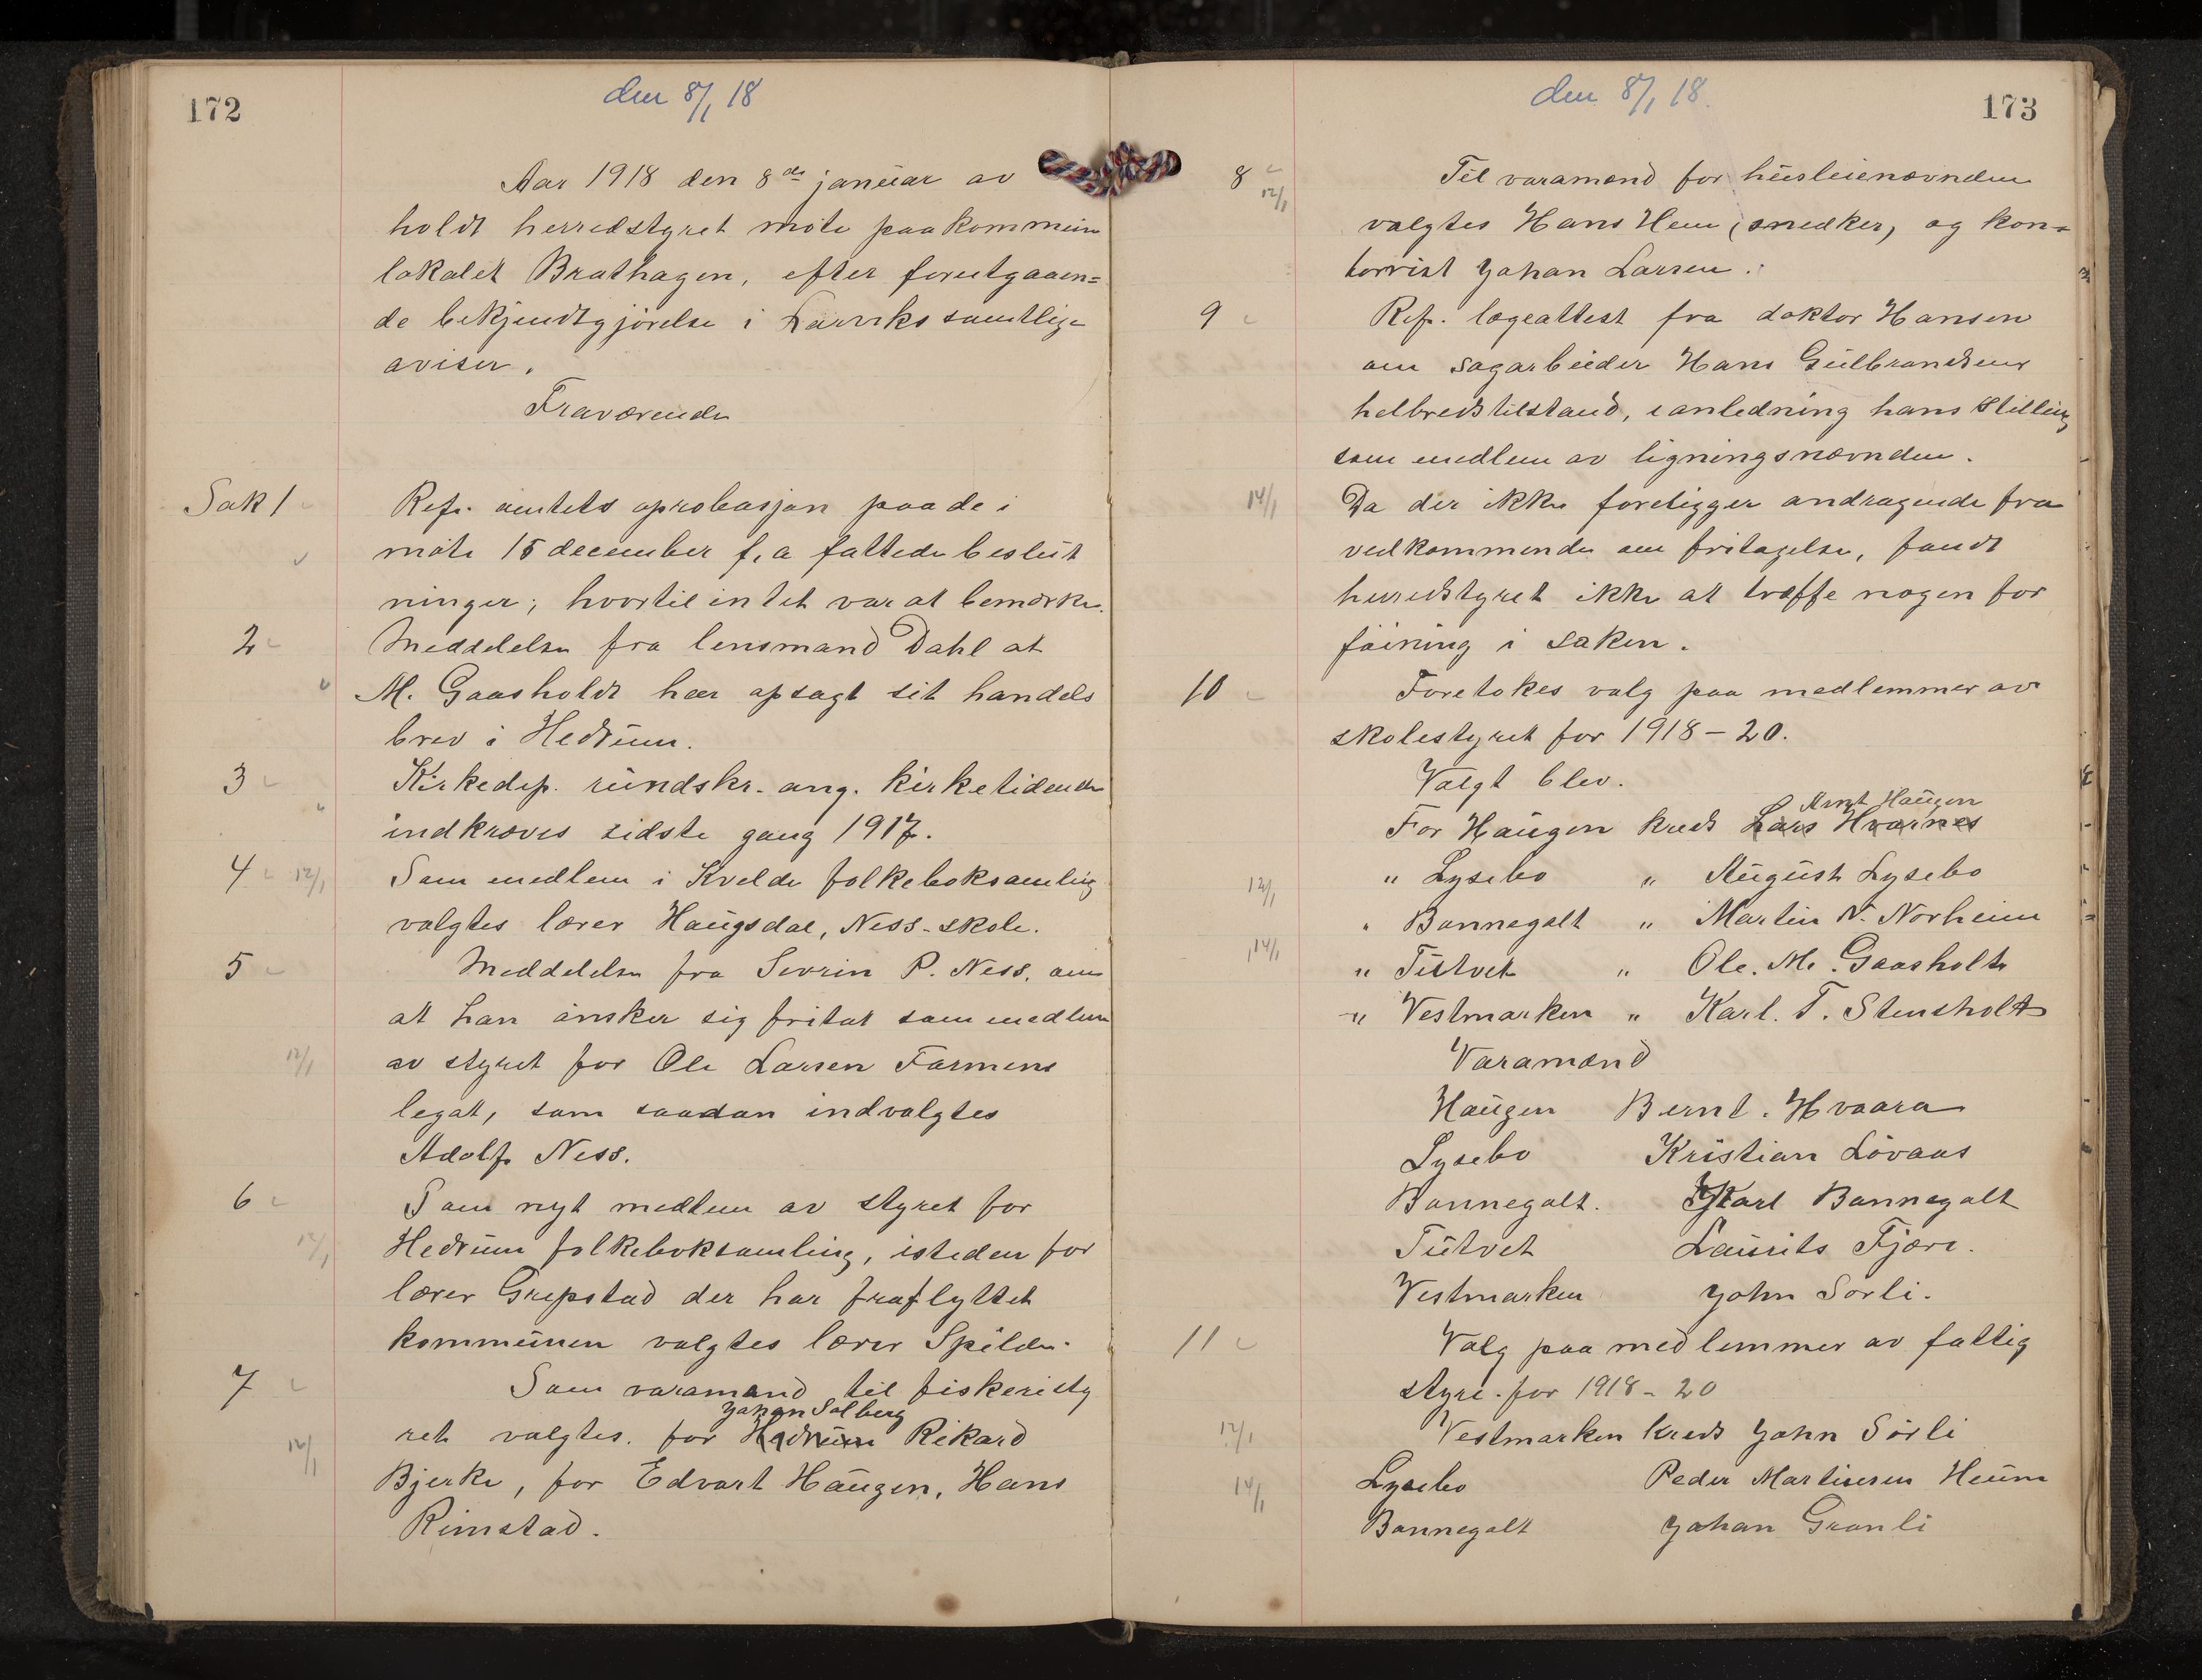 172
den 8/1 18
Aar 1918 den 8de januar av
holdt herredstyret møte paa kommun
lokalet Brathagen, efter forutgaaen=
de bekjendtgjørelse i Larviks samtlige
aviser.
Fraværende
Sak 1 Ref. amtets aprobasjon paa de i
møte 15 december f,a fattede beslut
ninger; hvortil intet var at bemærke.
2 Meddelelse fra lensmand Dahl at
M. Gaasholdt har opsagt sit handels
brev i Hedrum.
3 Kirkedep. rundskr. ang. kirketidende
indkræves sidste gang 1917.
4 12/1 Som medlem i Kvelde folkeboksamling
valgtes lærer Haugsdal, Ness-skole.
5 Meddelelse fra Sevrin P. Ness, om
at han ønsker sig fritat som medlem
12/1 av styret for Ole Larsen Farmens
legat, som saadan indvalgtes
Adolf Ness.
6 Som nyt medlem av styret for
12/1 Hedrum folkeboksamling, isteden for
lærer Grepstad der har fraflyttet
kommunen valgtes lærer Spilde.
7 Som varamænd til fiskeristy
Johan Solberg
12/1 ret valgtes. for Hedrum Rikard
Bjerke, for Edvart Haugen, Hans
Rimstad.
den 8/1 18.
173
8 12/1 Til varamænd for husleienævnden
valgtes Hans Hem (snedker) og kon=
torrist Johan Larsen.
9 Ref. lægeattest fra doktor Hansen
om sagarbeider Hans Gulbrandsens
helbredstilstand, i anledning hans stilling
som medlem av ligningsnævnden.
14/1 Da der ikke foreligger andragende fra
vedkommende om fritagelse, fandt
herredstyret ikke at træffe nogen for
føining i saken.
10 Foretokes valg paa medlemmer av
skolestyret for 1918 – 20.
Valgt blev.
Arnt Haugen
For Haugen kreds Lars Hvarnes
12/1 " Lysebo " August Lysebo
" Bonnegolt " Martin N. Norheim
14/1 " Tutvet " Ole. M. Gaasholt
" Vestmarken " Karl. T. Stensholt
Varamænd
Haugen Bernt. Hvaara
Lysebo Kristian Løvaas
Bonnegolt. Karl Bonnegolt
Tutvet Laurits Fjære.
Vestmarken John Sørli.
11 Valg paa medlemmer av fattig
styre. for 1918 - 20
12/1 Vestmarken kreds John Sørli
14/1 Lysebo Peder Martinsen Heum
Bonnegolt Johan Granli